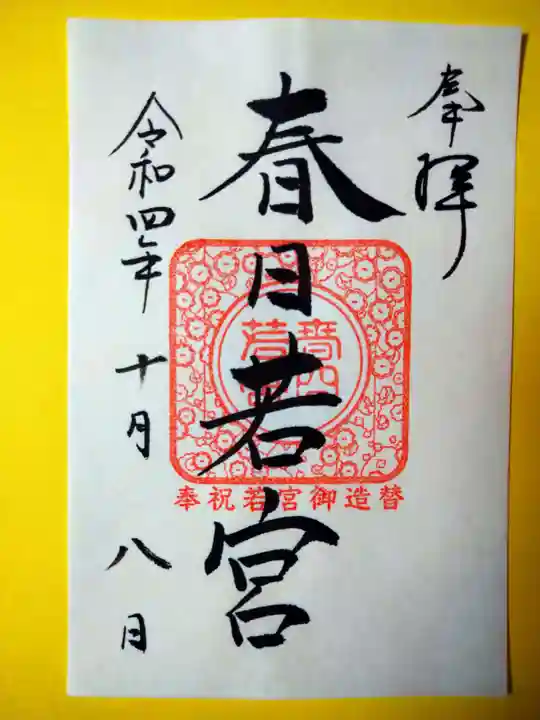 奉拝
春日若宮
奉祝若宮御造替
令和四年 十月 八日